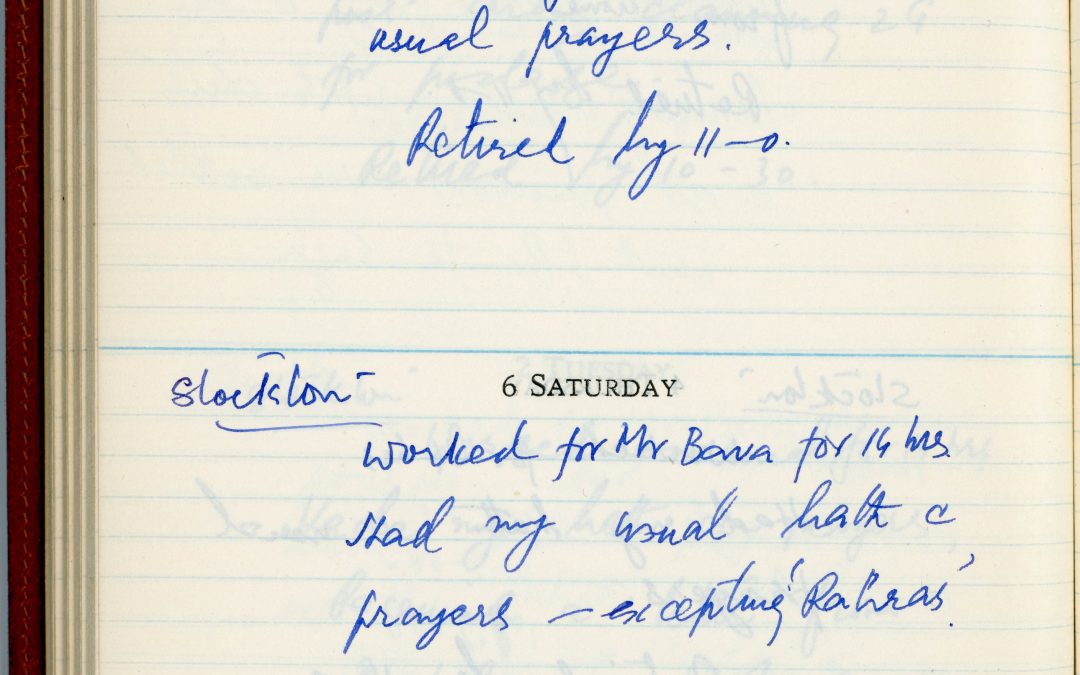 usual prayers.
Retired by 11-0.
Stockton 6 SATURDAY
Worked for Mr. Bava for 14 hrs
Had my usual bath &
prayers - excepting 'Rahras'.